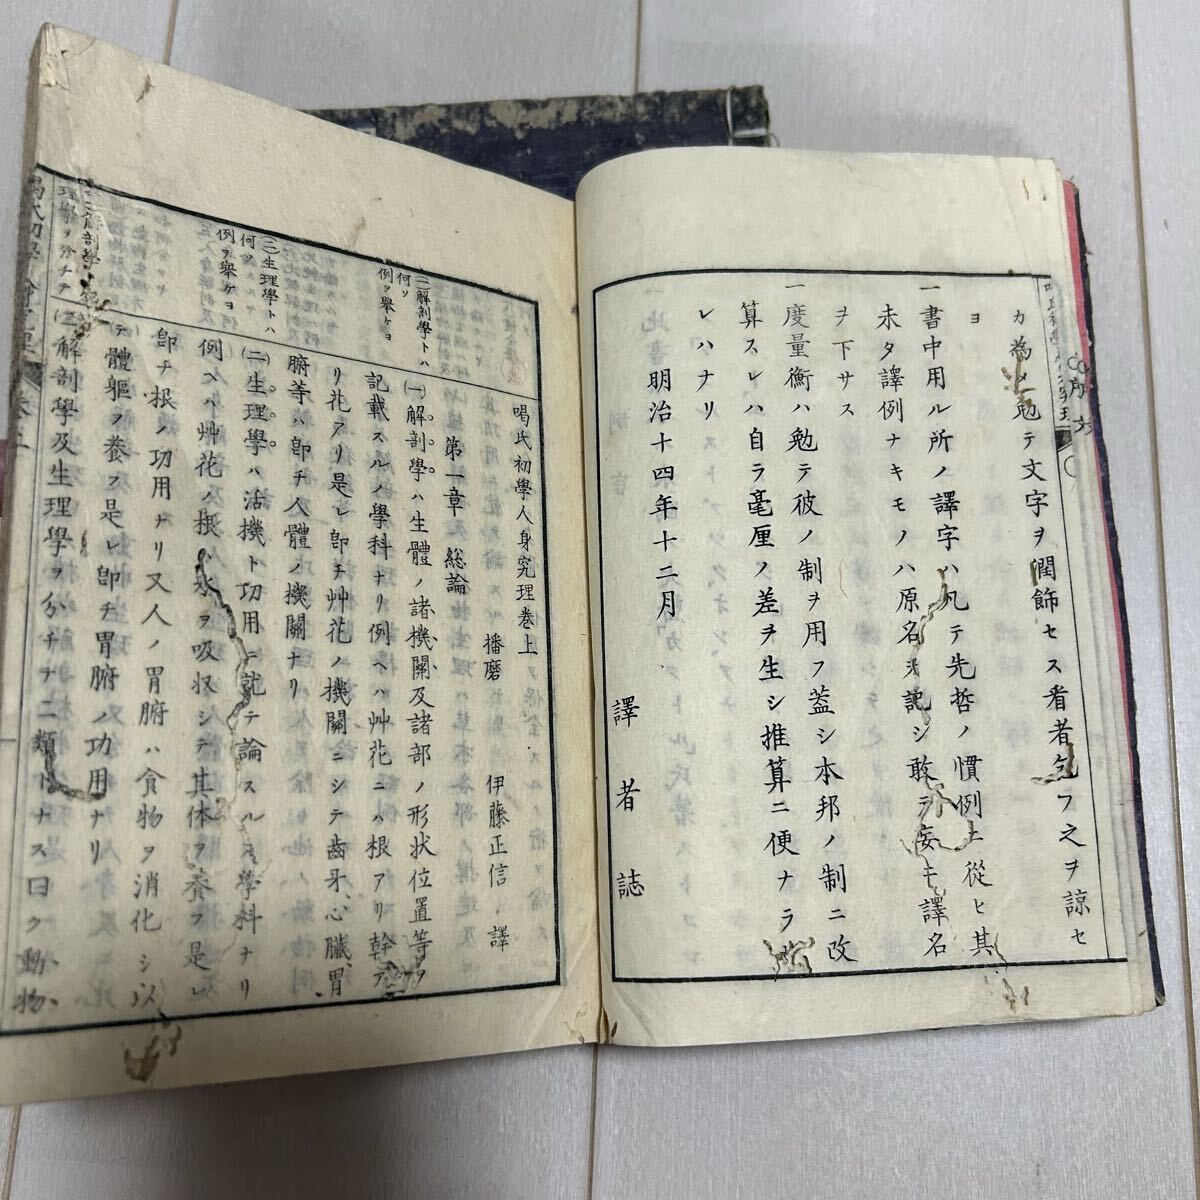 カ為メ勉テ文字ヲ潤飾セス看者乞フ之ヲ諒セ
ヨ
一書中用ル所ノ譯字ハ凡テ先哲ノ慣例ニ從ヒ其
未タ譯例ナキモノハ原名ヲ記シ敢テ妄ニ譯名
ヲ下サス
一度量衡ハ勉テ彼ノ制ヲ用フ蓋シ本邦ノ制ニ改
算スレハ自ラ毫厘ノ差ヲ生シ推算ニ便ナラサ
レハナリ
明治十四年十二月
譯者誌
喝氏初學人身究理卷上
播磨 伊藤正信 譯
第一章 総論
(一)解剖學トハ
何ソ
例ヲ舉ケヨ
(一)解剖學ハ生體ノ諸機關及諸部ノ形状位置等ヲ
記載スルノ學科ナリ例ヘハ艸花ニハ根アリ幹ア
リ花アリ是レ卽チ艸花ノ機關ニシテ齒牙、心臟胃
腑等ハ卽チ人體ノ機關ナリ
(二)生理學トハ
何ソ
例ヲ舉ケヨ
(二)生理學ハ活機ト功用ニ就テ論スルノ學科ナリ
例ヘハ艸花ノ根ハ水ヲ吸収シテ其体ヲ養フ是レ
卽チ根ノ功用ナリ又人ノ胃腑ハ食物ヲ消化シ以
テ體軀ヲ養フ是レ卽チ胃腑ノ功用ナリ
理學ヲ分チテ
(三)解剖學及生理學ヲ分チテ二類トナス曰ク動物